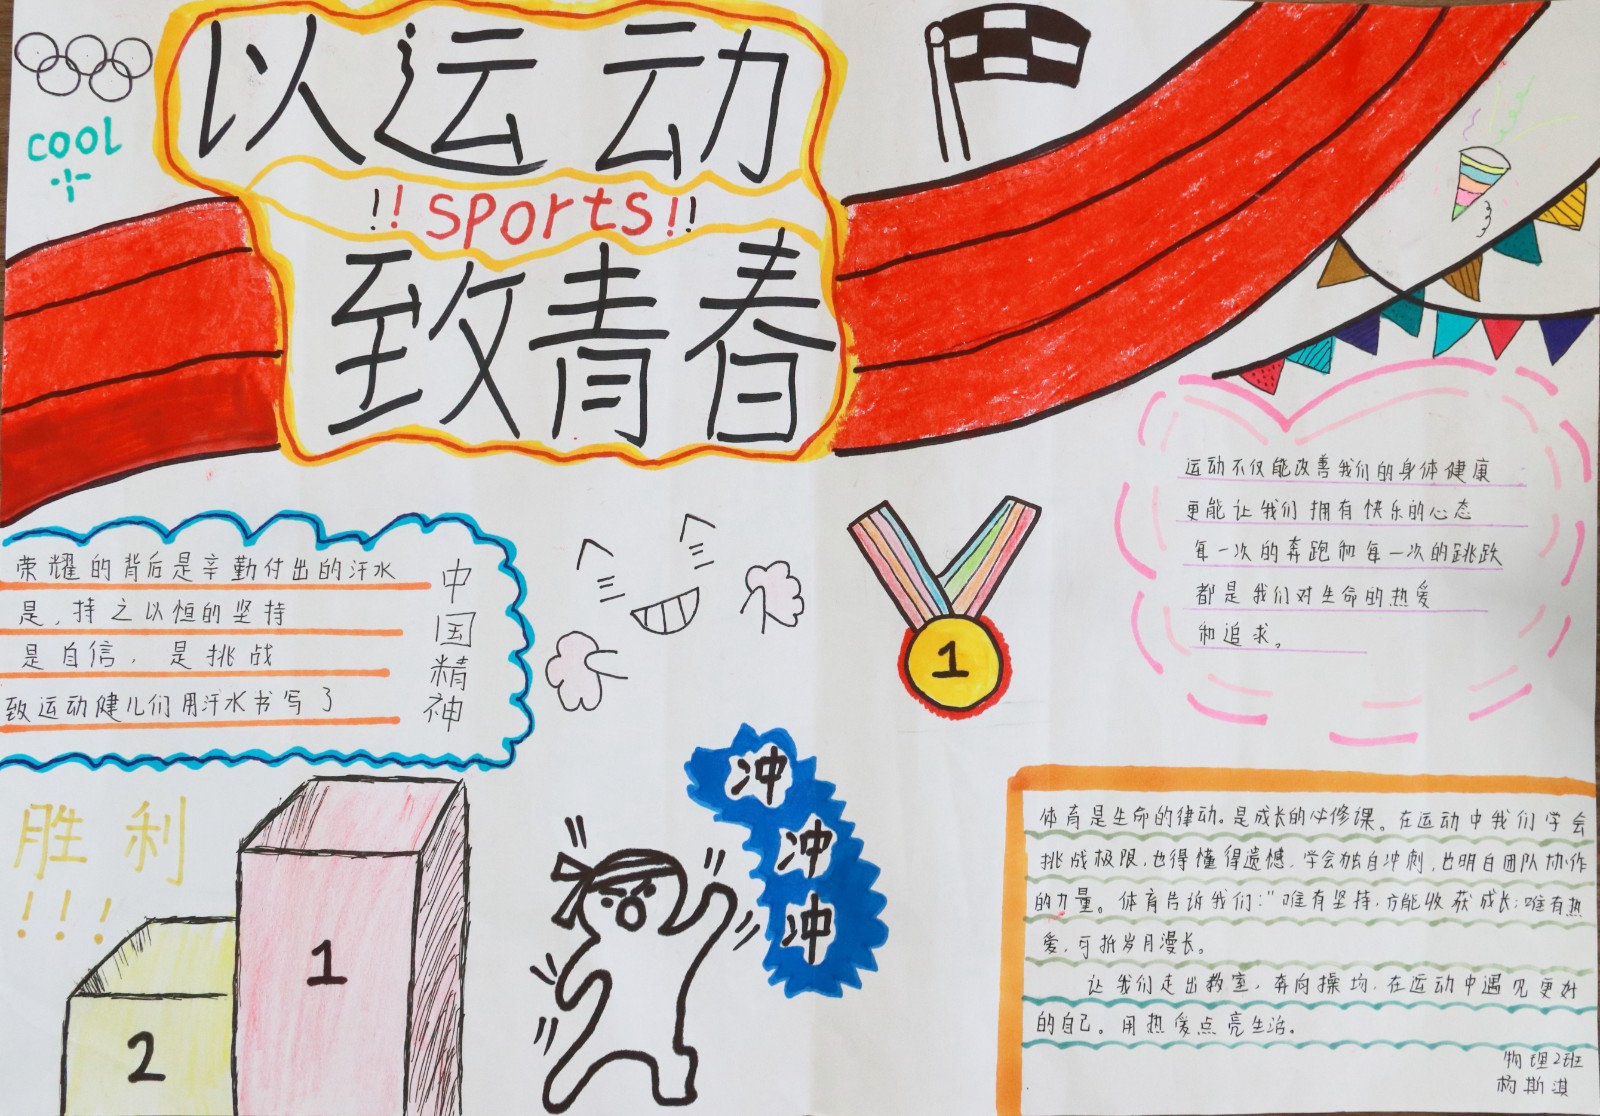 cool
以运动
!!sports!!
致青春
荣耀的背后是辛勤付出的汗水
是,持之以恒的坚持
是自信,是挑战
致运动健儿们用汗水书写了
中国精神
1
运动不仅能改善我们的身体健康
更能让我们拥有快乐的心态
每一次的奔跑和每一次的跳跃
都是我们对生命的热爱
和追求。
胜利
!!!
1
2
冲
冲
冲
体育是生命的律动。是成长的必修课。在运动中我们学会
挑战极限,也得懂得遗憾,学会独自冲刺,也明白团队协作
的力量。体育告诉我们:“唯有坚持,方能收获成长;唯有热
爱,可抵岁月漫长。
让我们走出教室,奔向操场,在运动中遇见更好
的自己。用热爱点亮生活。
物理2班
杨斯淇